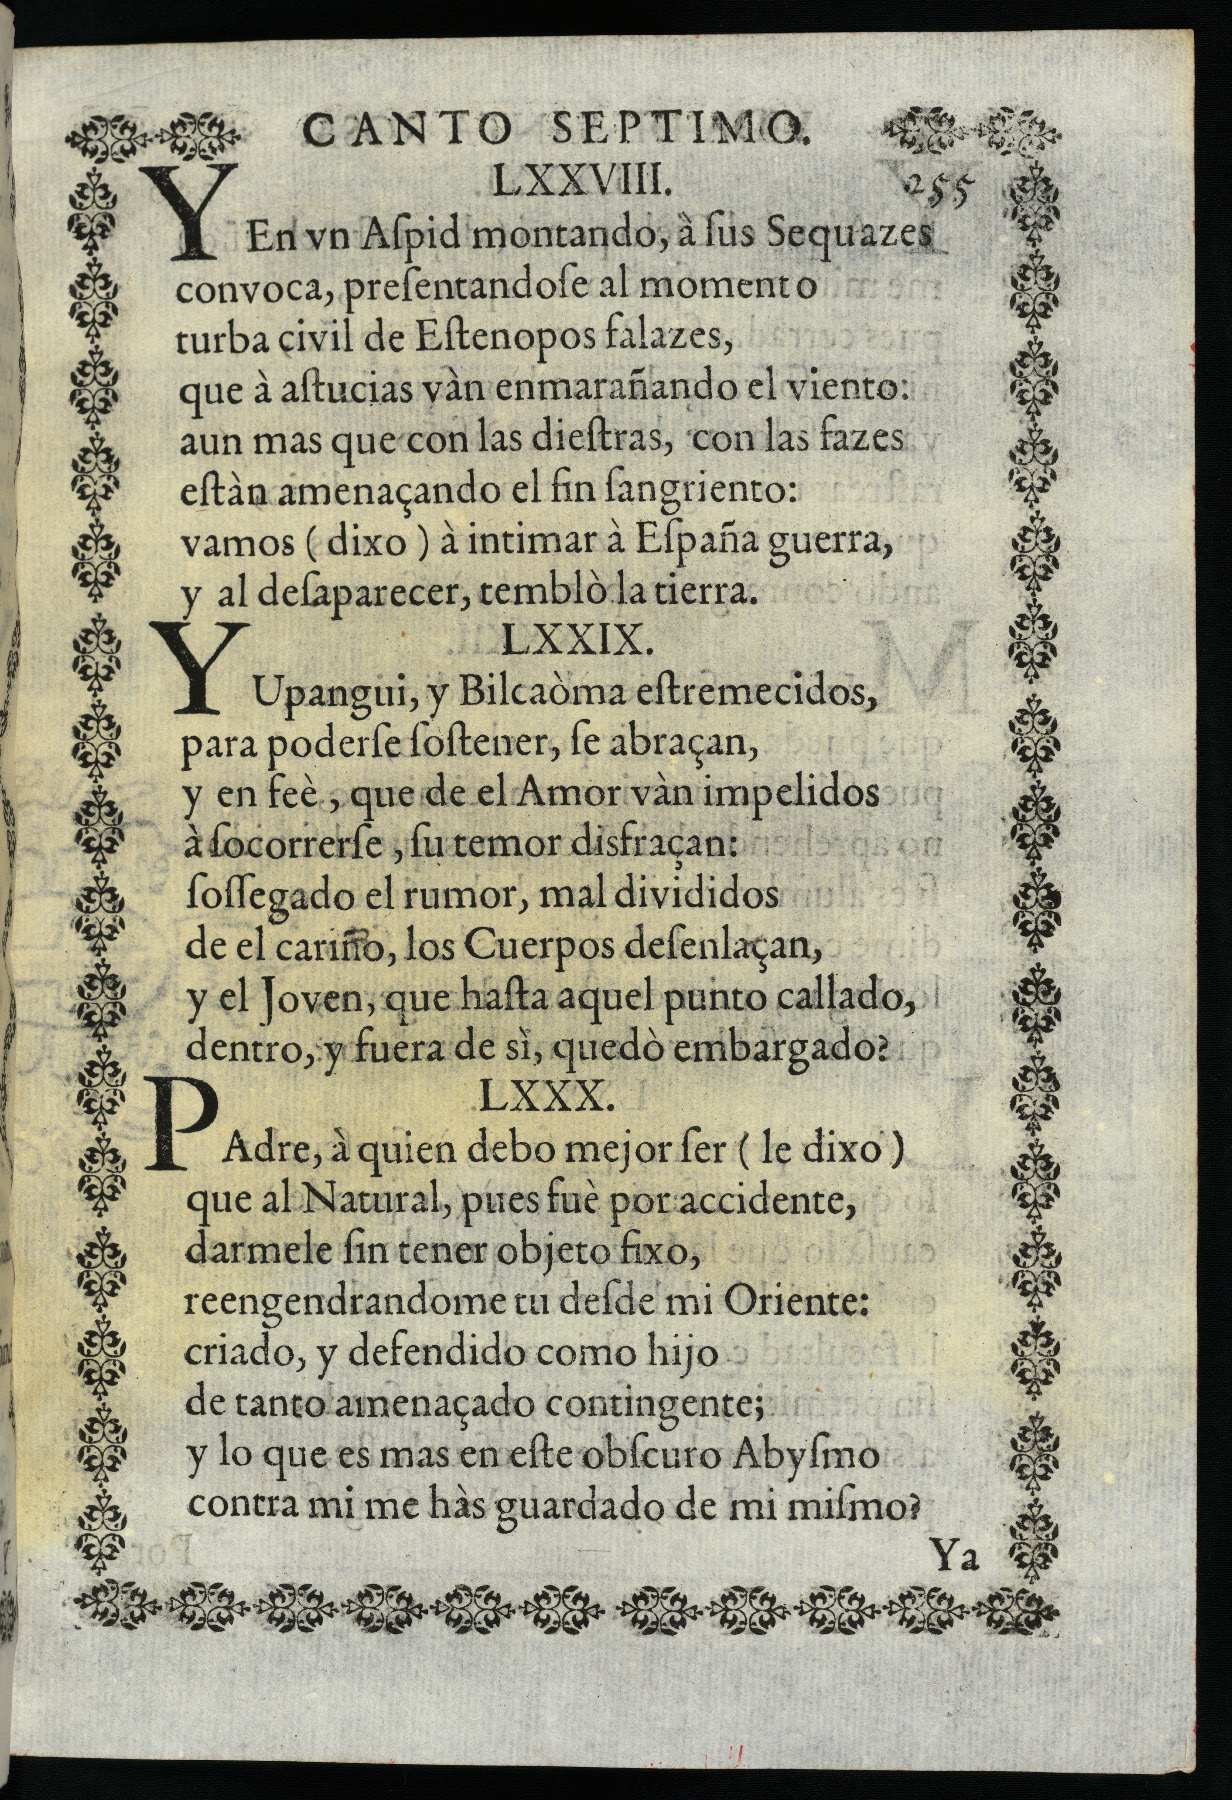 CANTO SEPTIMO.
LXXVIII.
255
YEn vn Aſpid montando, à ſus Sequazes
convoca, preſentandoſe al momento
turba civil de Eſtenopos falazes,
que à aſtucias vàn enmarañando el viento:
aun mas que con las dieſtras, con las fazes
eſtàn amenaçando el fin ſangriento:
vamos ( dixo ) à intimar à Eſpaña guerra,
y al deſaparecer, temblò la tierra.
LXXIX.
YUpangui, y Bilcaòma eſtremecidos,
para poderſe ſoſtener, ſe abraçan,
y en feè, que de el Amor vàn impelidos
à ſocorrerſe, ſu temor disfraçan:
ſoſſegado el rumor, mal divididos
de el cariño, los Cuerpos deſenlaçan,
y el Joven, que haſta aquel punto callado,
dentro, y fuera de sì, quedò embargado?
LXXX.
PAdre, à quien debo mejor ſer ( le dixo )
que al Natural, pues fuè por accidente,
darmele ſin tener objeto fixo,
reengendrandome tu deſde mi Oriente:
criado, y defendido como hijo
de tanto amenaçado contingente;
y lo que es mas en eſte obſcuro Abyſmo
contra mi me hàs guardado de mi miſmo?
Ya